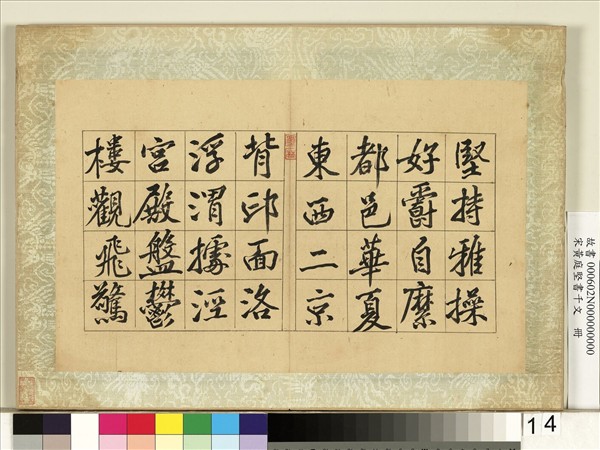 堅持雅操
好爵自縻
都邑華夏
東西二京
背邙面洛
浮渭據涇
宮殿盤鬱
樓觀飛驚
故書 000602N000000000
宋黃庭堅書千文 冊
14